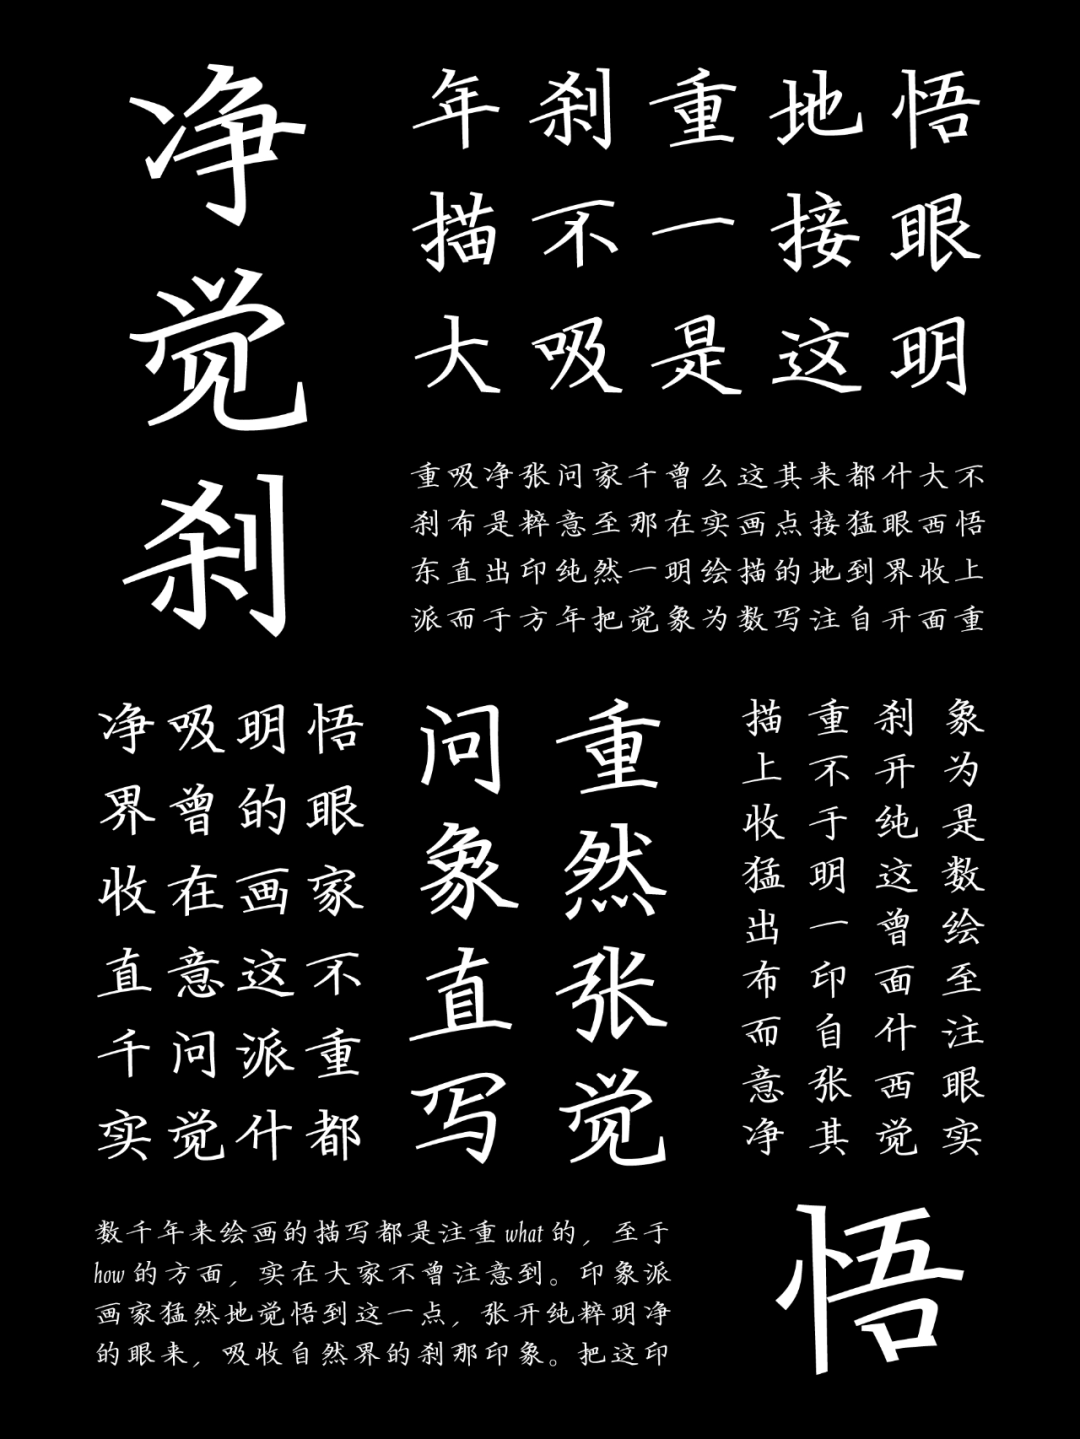 净
觉
刹
年刹重地悟
描不一接眼
大吸是这明
重吸净张问家千曾么这其来都什大不
刹布是粹意至那在实画点接猛眼西悟
东直出印纯然一明绘描的地到界收上
派而于方年把觉象为数写注自开面重
净吸明悟
界曾的眼
收在画家
直意这不
千问派重
实觉什都
问重
象然
直张
写觉
描重刹象
上不开为
收于纯是
猛明这数
出一曾绘
布印面至
而自什注
意张西眼
净其觉实
数千年来绘画的描写都是注重 what 的，至于
how 的方面，实在大家不曾注意到。印象派
画家猛然地觉悟到这一点，张开纯粹明净
的眼来，吸收自然界的刹那印象。把这印
悟